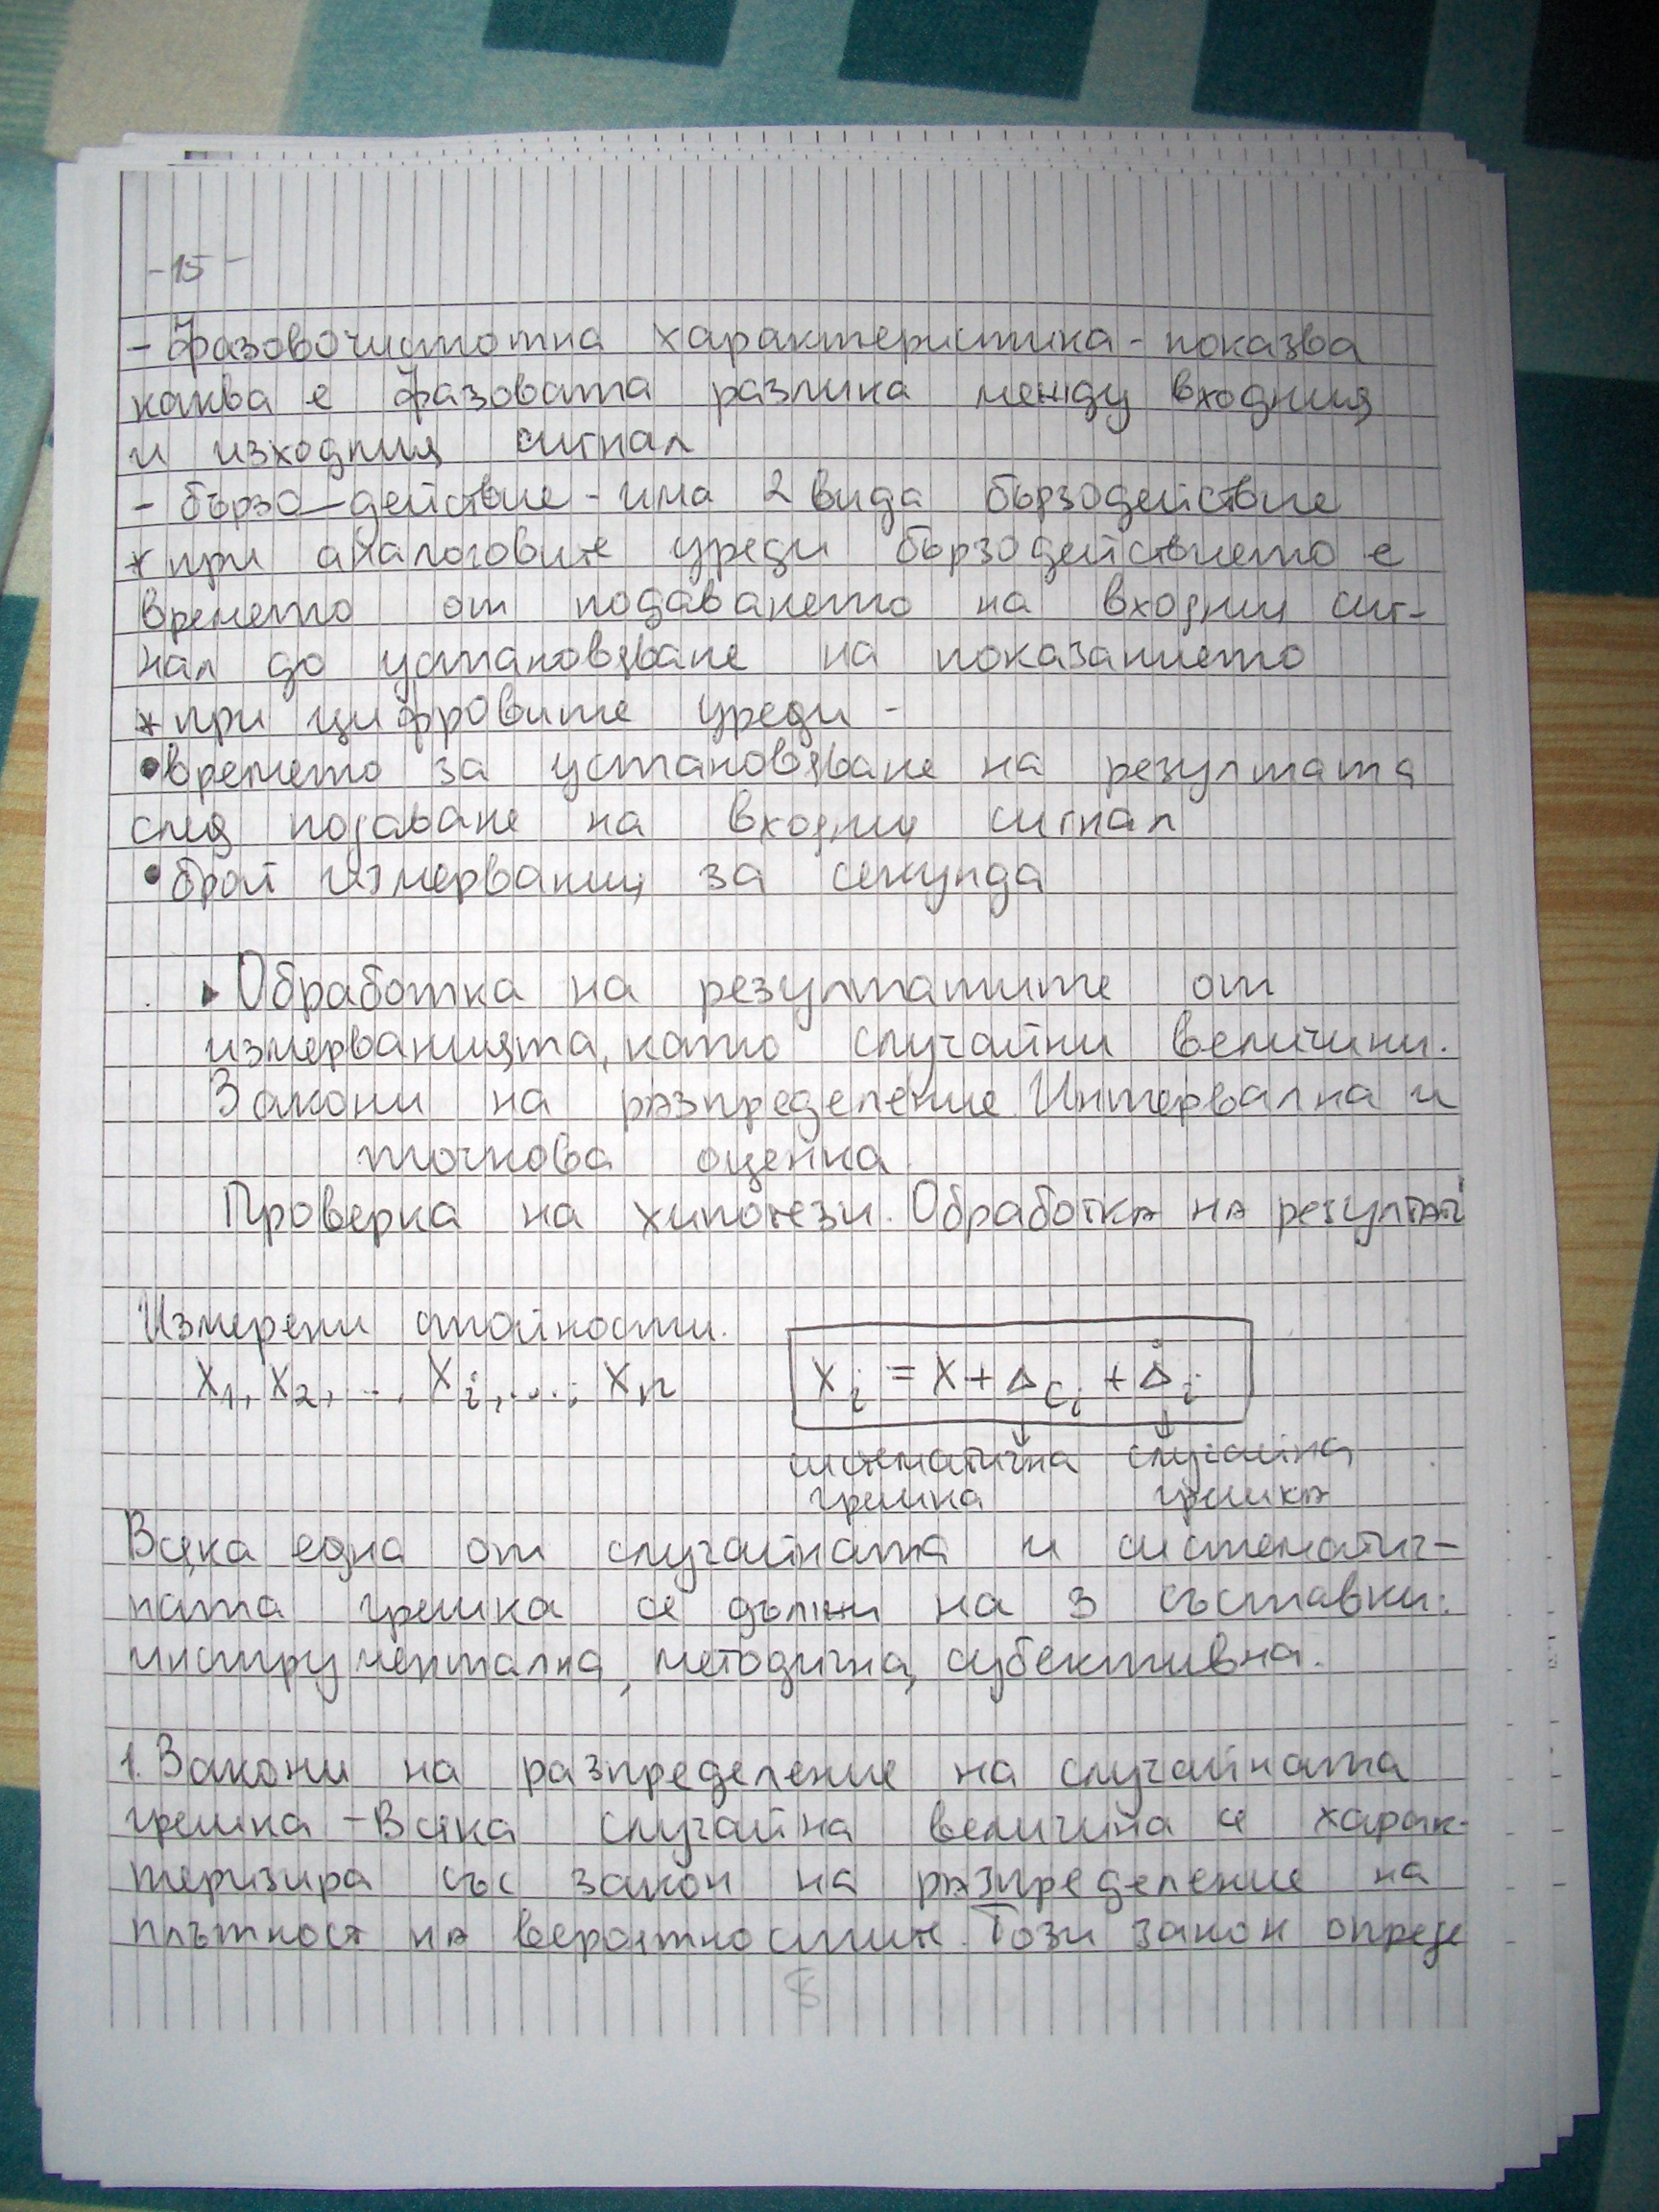 -15-
- Фазовочистотна характеристика - показва
каква е фазовата разлика между входния
и изходния сигнал
- бързо-действие - има 2 вида бързодействие
* при аналоговите уреди бързодействието е
времето от подаването на входния сиг-
нал до установяване на показанието
* при цифровите уреди -
• времето за установяване на резултата
след подаване на входния сигнал
• брой измервания за секунда
▸ Обработка на резултатите от
измерванията, като случайни величини.
Закони на разпределение. Интервална и
точкова оценка.
Проверка на хипотези. Обработка на резултати
Измерени стойности.
X₁, X₂, ..., Xᵢ, ..., Xn
Xᵢ = X + Δcᵢ + Δ̇ᵢ
систематична случайна
грешка грешка
Всяка една от случайната и систематич-
ната грешка се дължи на 3 съставки:
инструментална, методична, субективна.
1. Закони на разпределение на случайната
грешка - Всяка случайна величина се харак-
теризира със закон на разпределение на
плътност на вероятностите. Този закон опреде
8